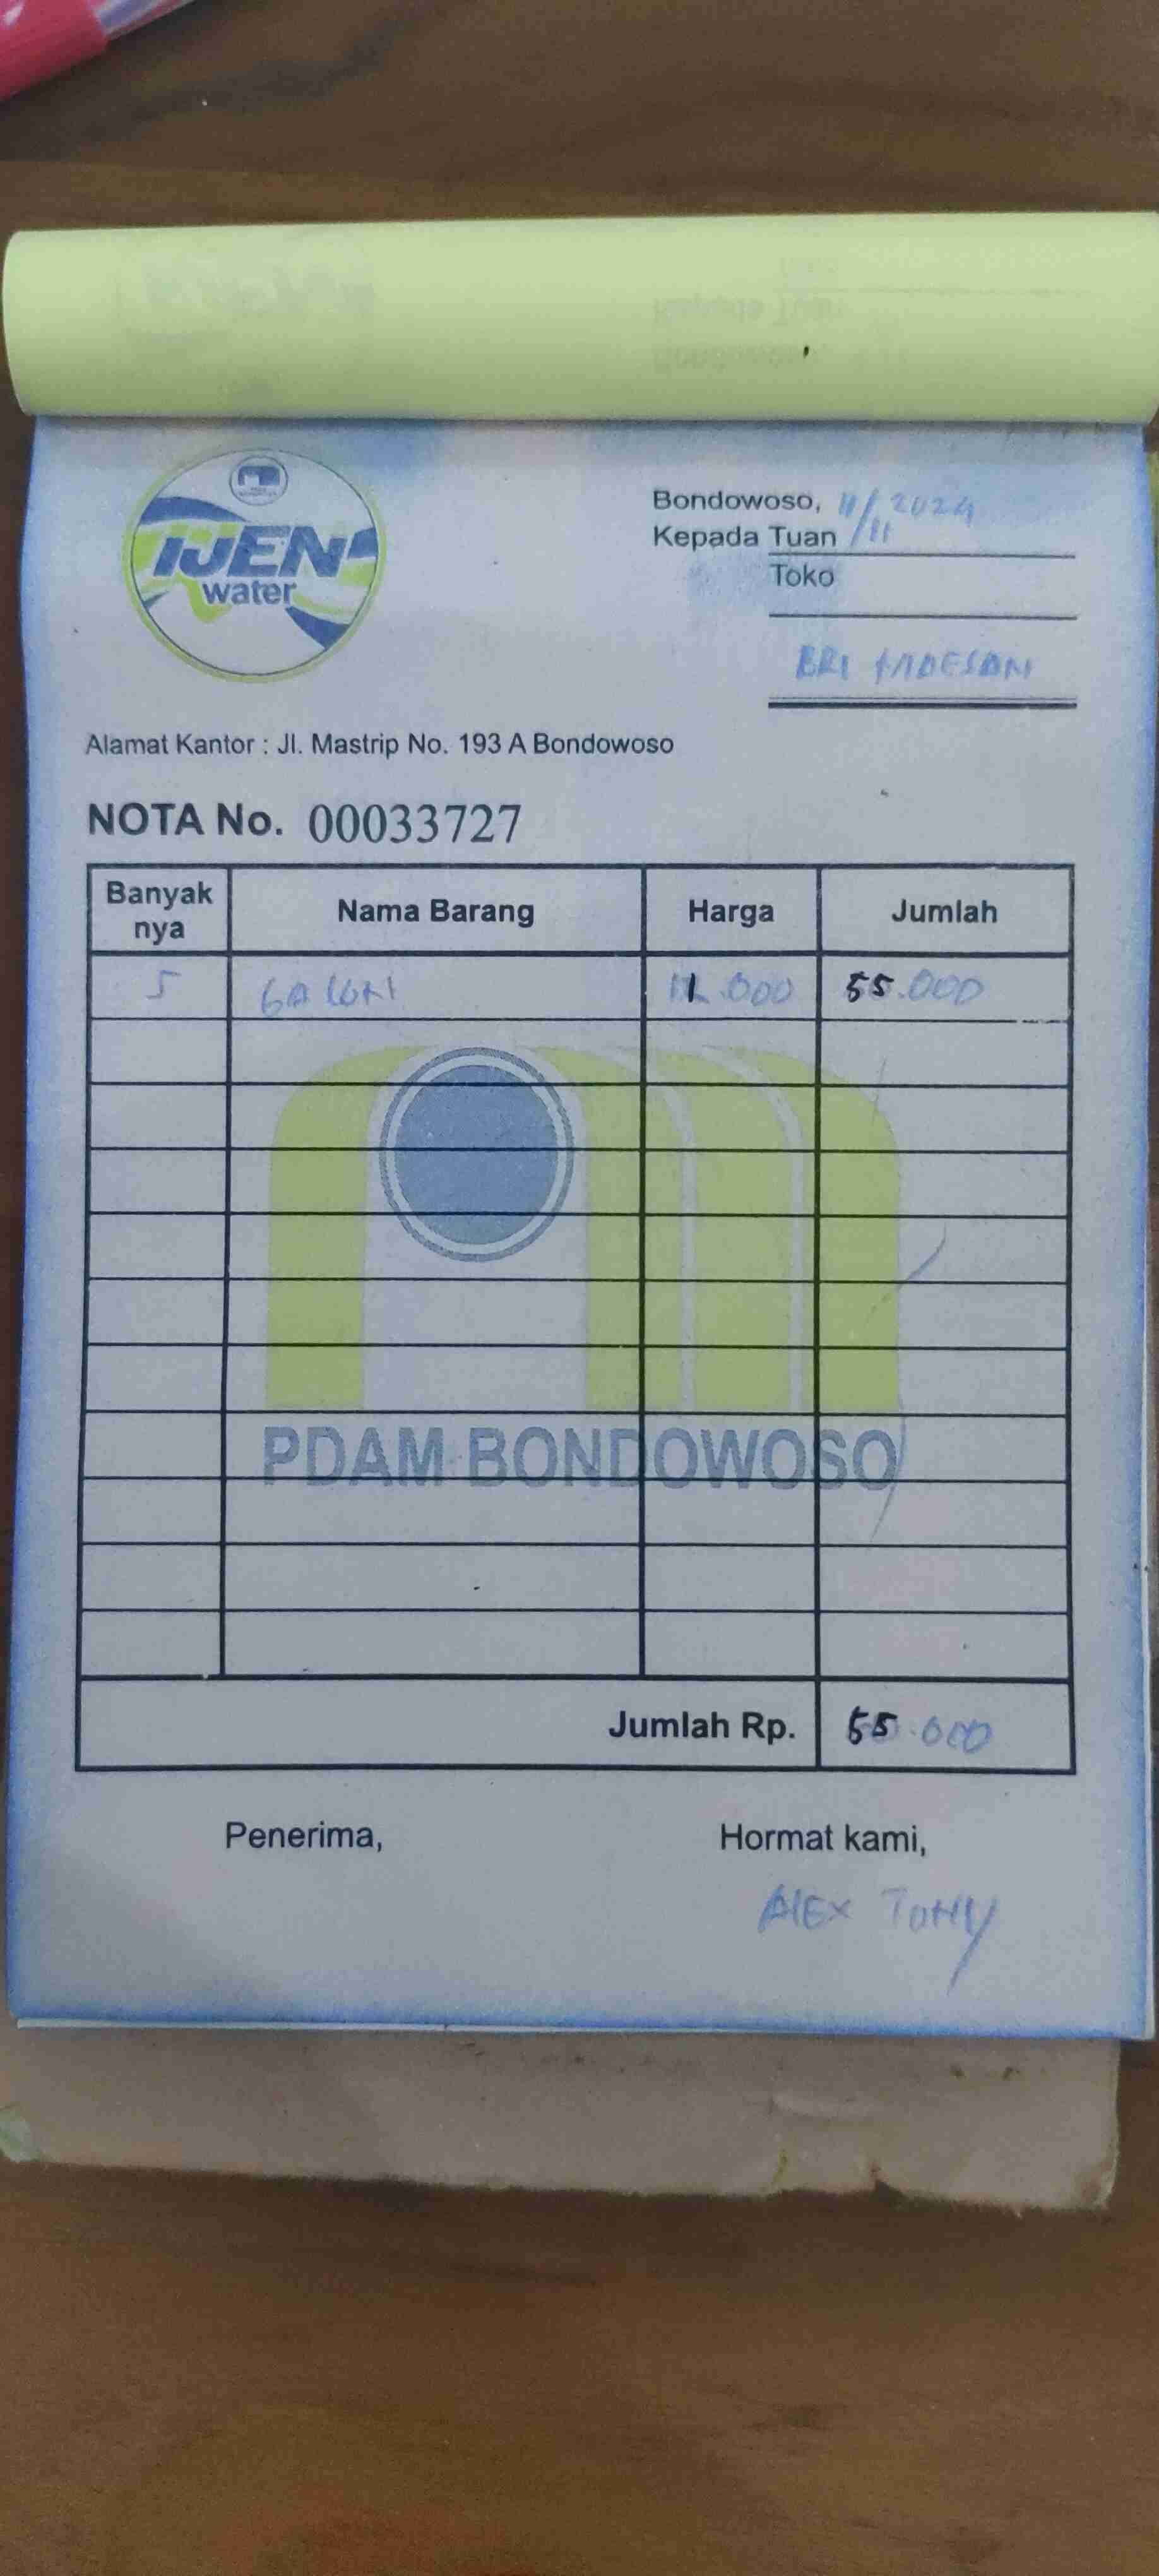 IJEN
water
Bondowoso, 11/11 2024
Kepada Tuan
Toko
BRI
Alamat Kantor : Jl. Mastrip No. 193 A Bondowoso
NOTA No. 00033727
Banyak nya Nama Barang Harga Jumlah
5 GALON 11.000 55.000
PDAM BONDOWOSO
Jumlah Rp. 55.000
Penerima, Hormat kami,
ALEX TONY